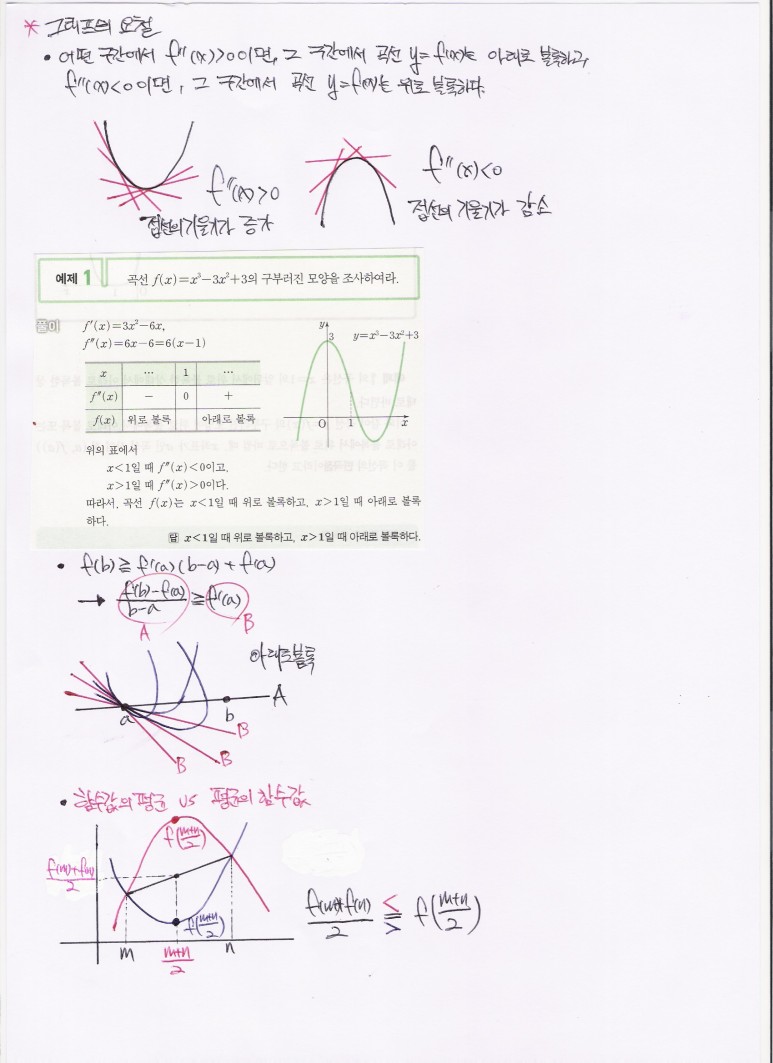 * 그래프의 요철
• 어떤 구간에서 f''(x)>0이면, 그 구간에서 곡선 y=f(x)는 아래로 볼록하고,
f''(x)<0이면, 그 구간에서 곡선 y=f(x)는 위로 볼록하다.
f''(x)>0
접선의 기울기가 증가
f''(x)<0
접선의 기울기가 감소
예제 1 곡선 f(x)=x³-3x²+3의 구부러진 모양을 조사하여라.
풀이 f'(x)=3x²-6x,
f''(x)=6x-6=6(x-1)
x … 1 …
f''(x) - 0 +
f(x) 위로 볼록 아래로 볼록
y
3
y=x³-3x²+3
O 1 x
위의 표에서
x<1일 때 f''(x)<0이고,
x>1일 때 f''(x)>0이다.
따라서, 곡선 f(x)는 x<1일 때 위로 볼록하고, x>1일 때 아래로 볼록
하다.
답 x<1일 때 위로 볼록하고, x>1일 때 아래로 볼록하다.
• f(b) ≧ f'(a)(b-a)+f(a)
→ (f(b)-f(a))/(b-a) ≧ f'(a)
A B
아래로볼록
a b A
B
B
B
• 함수값의 평균 vs 평균의 함수값
f((m+n)/2)
(f(m)+f(n))/2
f((m+n)/2)
m (m+n)/2 n
(f(m)+f(n))/2 ≦ ≧ f((m+n)/2)